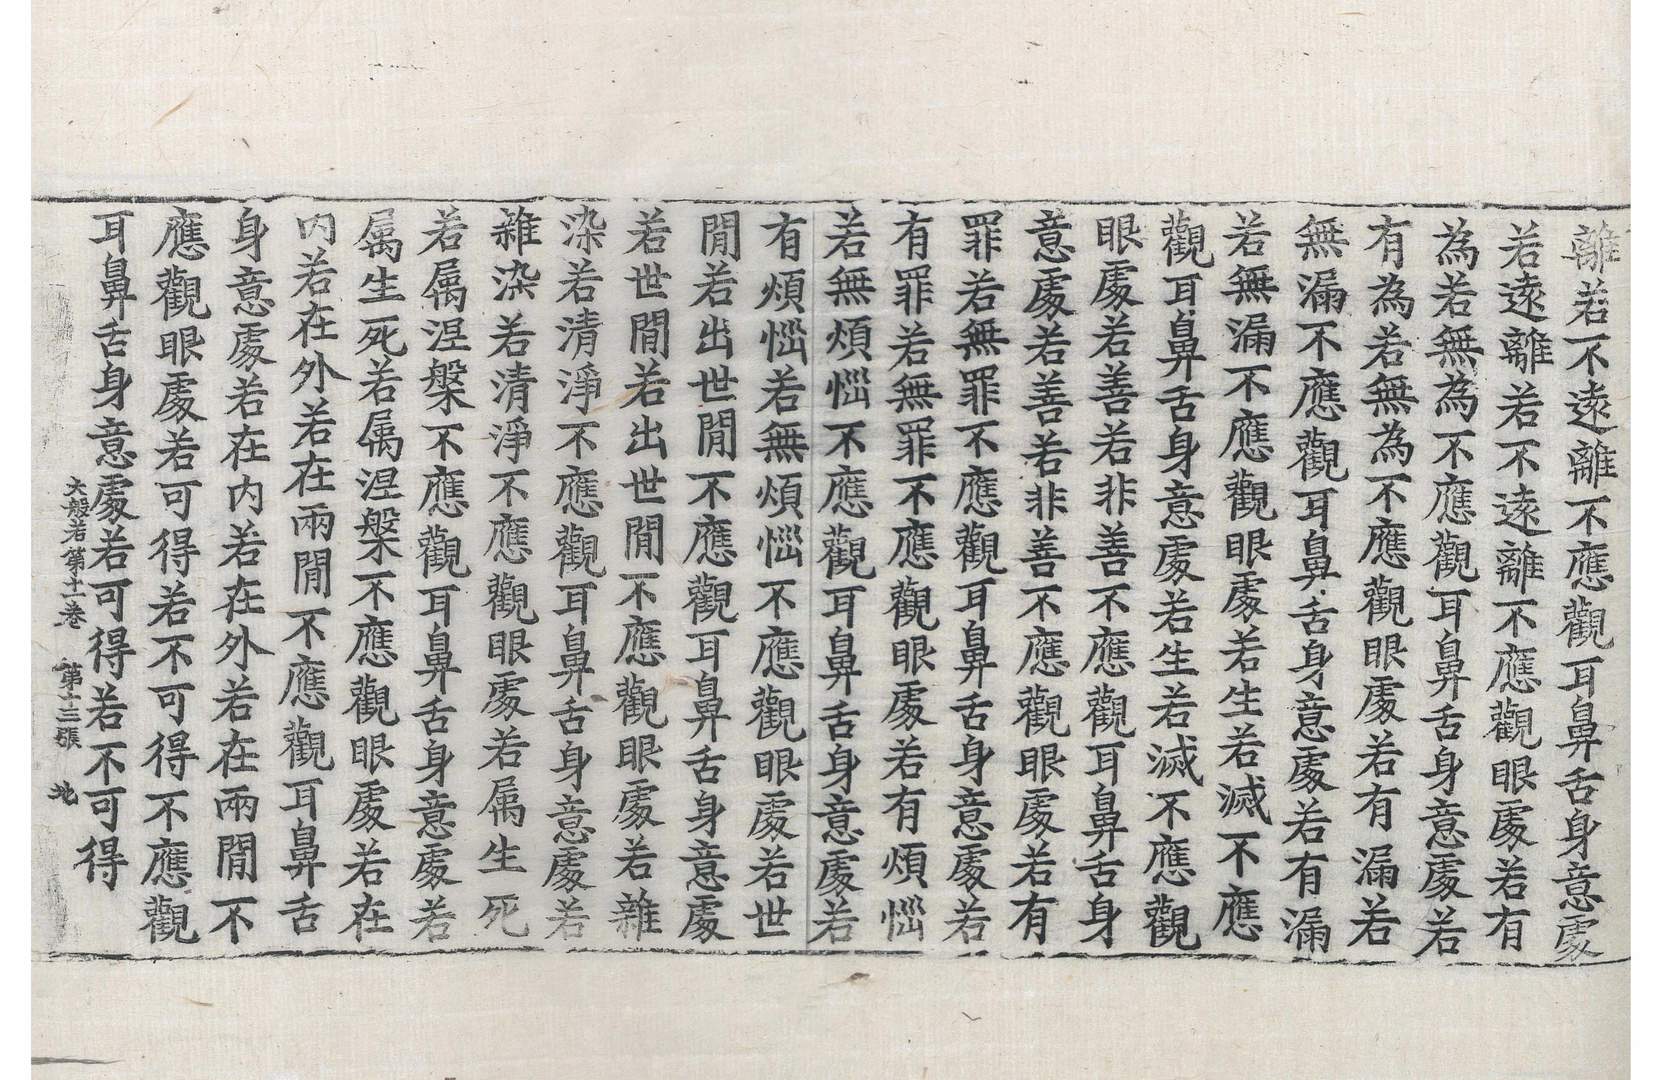 離若不遠離不應觀耳鼻舌身意處
若遠離若不遠離不應觀眼處若有
為若無為不應觀耳鼻舌身意處若
有為若無為不應觀眼處若有漏若
無漏不應觀耳鼻舌身意處若有漏
若無漏不應觀眼處若生若滅不應
觀耳鼻舌身意處若生若滅不應觀
眼處若善若非善不應觀耳鼻舌身
意處若善若非善不應觀眼處若有
罪若無罪不應觀耳鼻舌身意處若
有罪若無罪不應觀眼處若有煩惱
若無煩惱不應觀耳鼻舌身意處若
有煩惱若無煩惱不應觀眼處若世
閒若出世閒不應觀耳鼻舌身意處
若世閒若出世閒不應觀眼處若雜
染若清淨不應觀耳鼻舌身意處若
雜染若清淨不應觀眼處若属生死
若属涅槃不應觀耳鼻舌身意處若
属生死若属涅槃不應觀眼處若在
内若在外若在兩閒不應觀耳鼻舌
身意處若在内若在外若在兩閒不
應觀眼處若可得若不可得不應觀
耳鼻舌身意處若可得若不可得
大般若第十一卷 第十三張 地